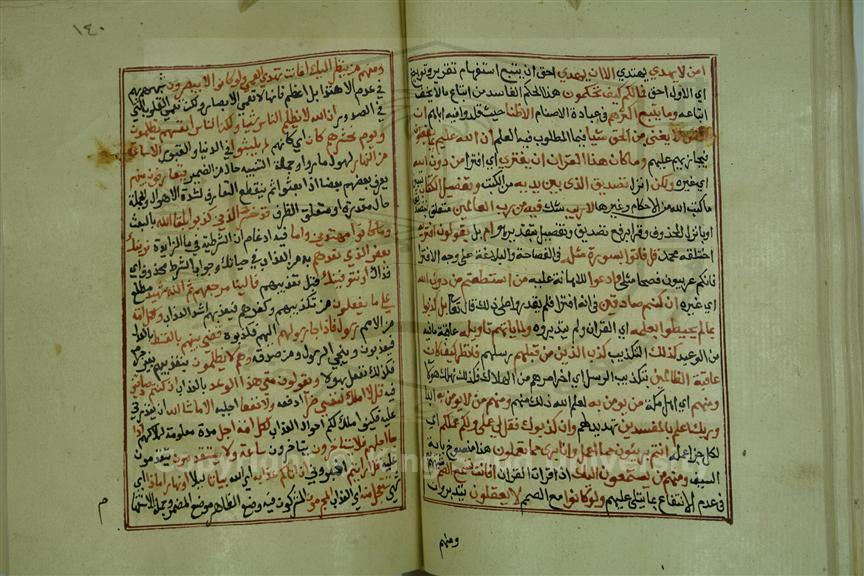 امن لا يهدي يهتدي الا ان يهدي احق ان يتبع استفهام تقرير وتوبيخ
اي الاول احق فما لكم كيف تحكمون هذا الحكم الفاسد من اتباع ما لا يحق
اتباعه وما يتبع اكثرهم في عبادة الاصنام الا ظنا حيث قلدوا فيه اباءهم ان
الظن لا يغني من الحق شيا فيما المطلوب فيه العلم ان الله عليم بما يفعلون
فيجازيهم عليه وما كان هذا القران ان يفتري اي افترا من دون الله
اي غيره ولكن انزل تصديق الذي بين يديه من الكتب وتفصيل الكتاب
ما كتب الله من الاحكام وغيرها لا ريب شك فيه من رب العالمين متعلق بتصديق
او بانزل المحذوف وقرا برفع تصديق وتفصيل بتقدير هو ام بل يقولون افتراه
اختلقه محمد قل فاتوا بسورة مثله في الفصاحة والبلاغة علي وجه الافترا
فانكم عربيون فصحا مثلي وادعوا للاعانة عليه من استطعتم من دون الله
اي غيره ان كنتم صادقين في انه افترا فلم يقدروا علي ذلك قال تعالي بل كذبوا
بما لم يحيطوا بعلمه اي القران ولم يتدبروه ولما ياتهم تاويله عاقبة ما فيه
من الوعيد كذلك التكذيب كذب الذين من قبلهم رسلهم فانظر كيف كان
عاقبة الظالمين بتكذيب الرسل اي اخر امرهم من الهلاك فكذلك نهلك هولا
ومنهم اي اهل مكة من يومن به لعلم الله ذلك منهم ومنهم من لا يومن به ابدا
وربك اعلم بالمفسدين تهديد لهم وان كذبوك فقل لي عملي ولكم عملكم اي
لكل جزا عمله انتم بريئون مما اعمل وانا بري مما تعملون هذا منسوخ باية
السيف ومنهم من يستمعون اليك اذا قرات القران افانت تسمع الصم
في عدم الانتفاع بما يتلي عليهم ولو كانوا مع الصم لا يعقلون يتدبرون
ومنهم
١٤٠
ومنهم من ينظر اليك افانت تهدي العمي ولو كانوا لا يبصرون شبههم بهم
في عدم الاهتدا بل اعظم فانها لا تعمي الابصار ولكن تعمي القلوب التي
في الصدور ان الله لا يظلم الناس شيا ولكن الناس انفسهم يظلمون
ويوم يحشرهم كان اي كانهم لم يلبثوا في الدنيا والقبور الا ساعة
من النهار لهول ما راوا وجملة التشبيه حال من الضمير يتعارفون بينهم
يعرف بعضهم بعضا اذا بعثوا ثم ينقطع التعارف لشدة الاهوال والجملة
حال مقدرة او متعلق الظرف قد خسر الذين كذبوا بلقا الله بالبعث
وما كانوا مهتدين واما فيه ادغام ان الشرطية في ما الزايدة نرينك
بعض الذي نعدهم به من العذاب في حياتك وجواب الشرط محذوف اي
فذاك او نتوفينك قبل تعذيبهم فالينا مرجعهم ثم الله شهيد مطلع
علي ما يفعلون من تكذيبهم وكفرهم فيعذبهم اشد العذاب ولكل امة
من الامم رسول فاذا جا رسولهم اليهم فكذبوه قضي بينهم بالقسط بالعدل
فيعذبون وينجي الرسول ومن صدقه وهم لا يظلمون بتعذيبهم بغير جرم
فكذلك نفعل بهولا ويقولون متي هذا الوعد بالعذاب ان كنتم صادقين
فيه قل لا املك لنفسي ضرا ادفعه ولا نفعا اجلبه الا ما شا الله ان يقدرني
عليه فكيف املك لكم احوال العذاب لكل امة اجل مدة معلومة لهلاكهم اذا
جا اجلهم فلا يستاخرون يتاخرون ساعة ولا يستقدمون يتقدمون
عليه قل ارايتم اخبروني ان اتاكم عذابه اي الله بياتا ليلا او نهارا ماذا اي
شي يستعجل منه اي العذاب المجرمون المشركون فيه وضع الظاهر موضع المضمر وجملة الاستفها
م